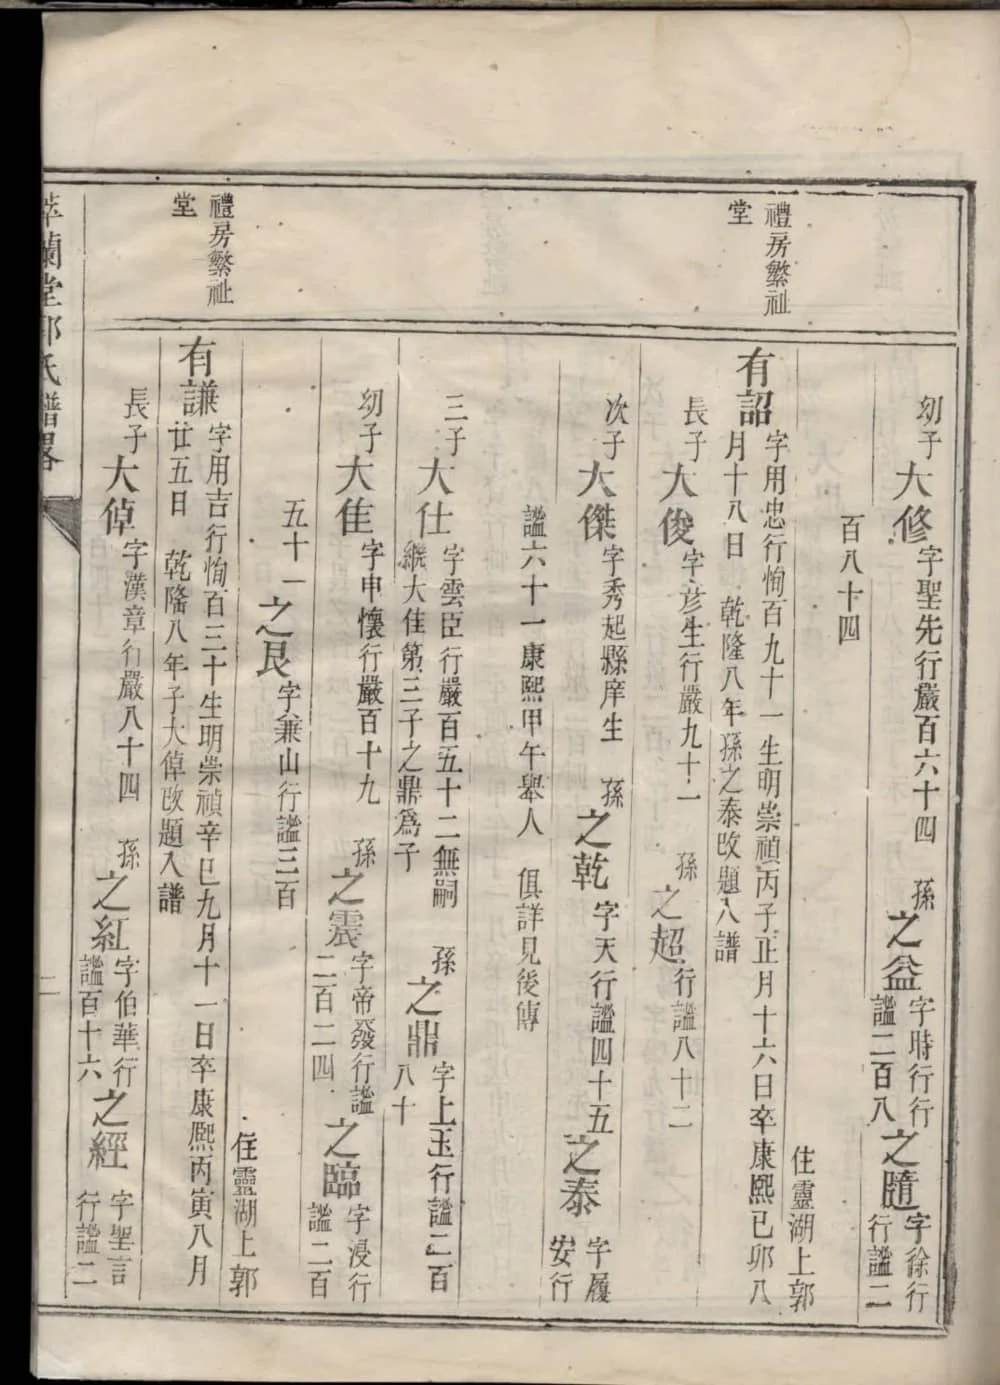 禮房繁祉
堂
禮房繁祉
堂
幼子大修字聖先行嚴百六十四 孫之益字時行行
謐二百八之隨字徐行
行謐二
百八十四
住靈湖上郭
有詔字用忠行恂百九十一生明崇禎丙子正月十六日卒康熙己卯八
月十八日 乾隆八年孫之泰改題入譜
長子大俊字彥生行嚴九十一 孫之超行謐八十二
次子大傑字秀起縣庠生 孫之乾字天行謐四十五之泰字履
安行
謐六十一康熙甲午舉人 俱詳見後傳
三子大仕字雲臣行嚴百五十二無嗣 孫之鼎字上玉行謐二百
繼大佳第三子之鼎為子 八十
幼子大佳字申懷行嚴百十九 孫之震字帝發行謐
二百二四之臨字浸行
謐二百
五十一之艮字兼山行謐三百
住靈湖上郭
有謙字用吉行恂百三十生明崇禎辛巳九月十一日卒康熙丙寅八月
廿五日 乾隆八年子大倬改題入譜
長子大倬字漢章行嚴八十四 孫之紅字伯華行
謐百十六之經字聖言
行謐二
萃蘭堂郭氏譜畧
二